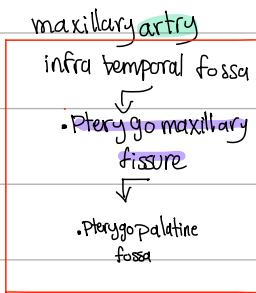 maxillary artry
infra temporal fossa
.Pterygomaxillary
fissure
.Pterygopalatine
fossa